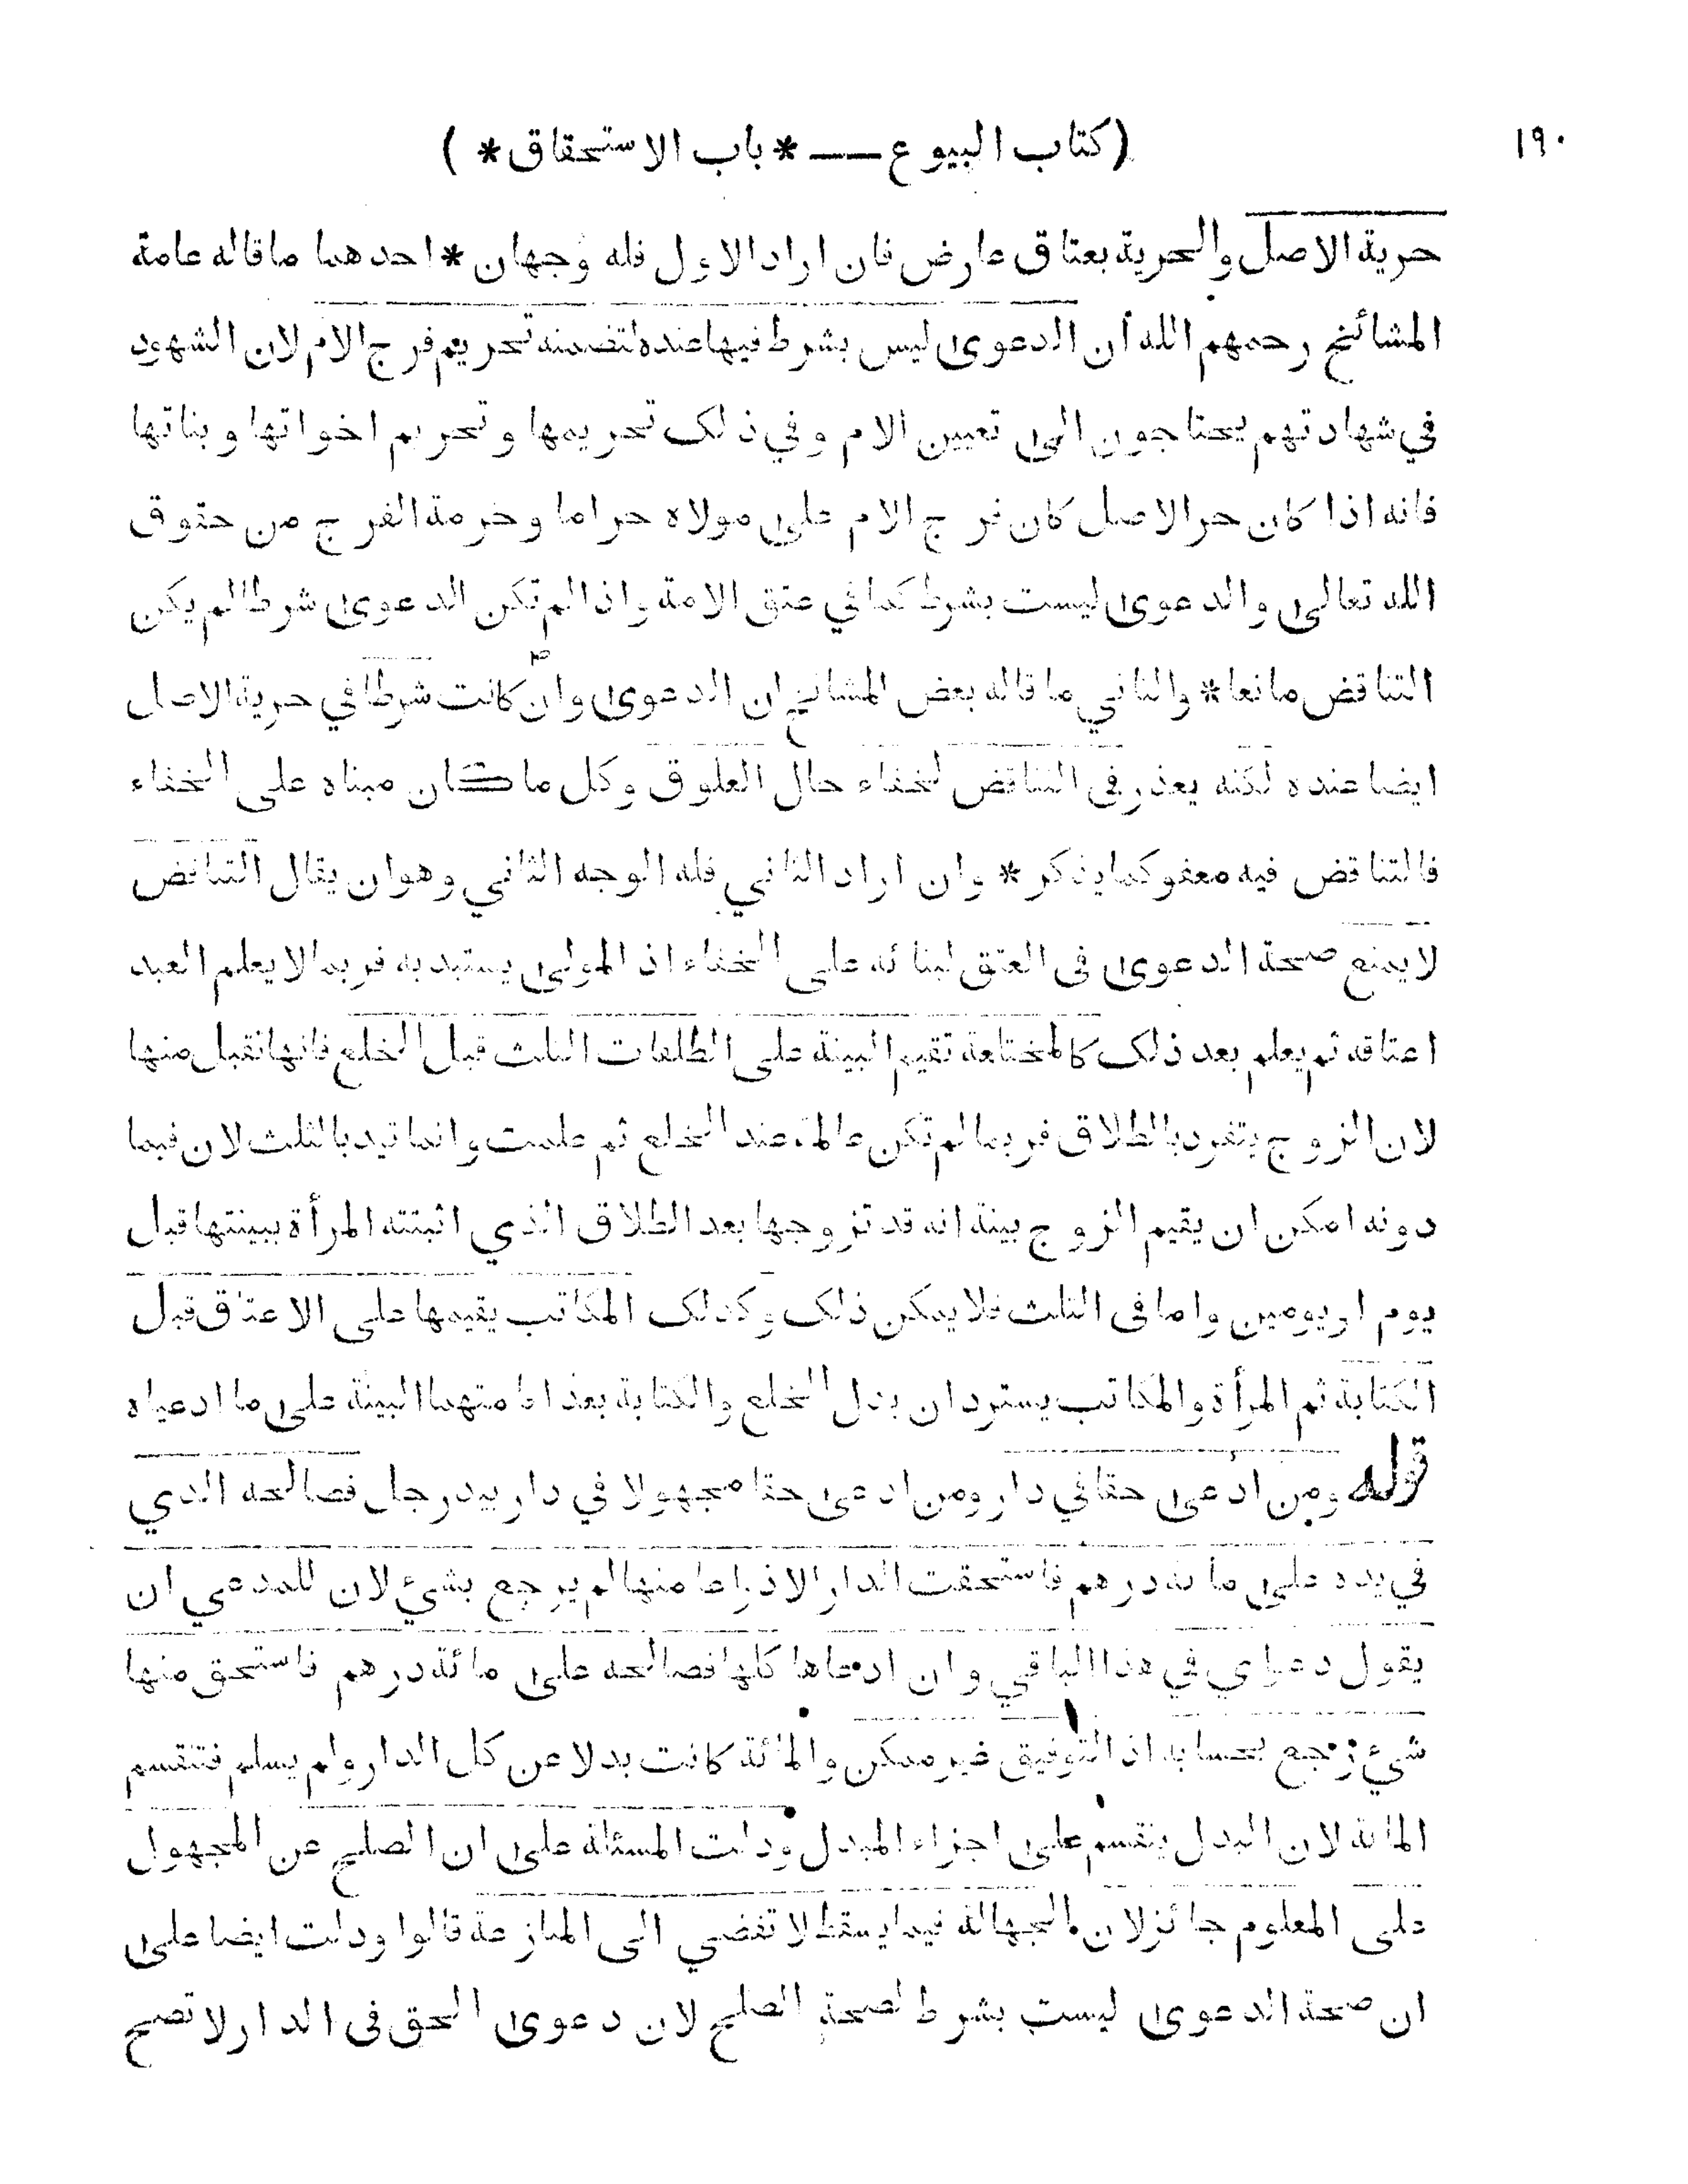 ١٩٠
(كتاب البيوع — * باب الاستحقاق * )
حرية الاصل والحرية بعتاق عارض فان اراد الاول فله وجهان * احدهما ما قاله عامة
المشائخ رحمهم الله ان الدعوى ليس بشرط فيها عنده لتضمنه تحريم فرج الام لان الشهود
في شهادتهم يحتاجون الى تعيين الام وفي ذلك تحريمها وتحريم اخواتها وبناتها
فانه اذا كان حر الاصل كان فرج الام على مولاه حراما وحرمة الفرج من حقوق
الله تعالى والدعوى ليست بشرط كما في عتق الامة واذا لم تكن الدعوى شرطا لم يكن
التناقض مانعا * والثاني ما قاله بعض المشائخ ان الدعوى وان كانت شرطا في حرية الاصل
ايضا عنده لكنه يعذر فى التناقض لخفاء حال العلوق وكل ما كان مبناه على الخفاء
فالتناقض فيه معفو كما يذكر * وان اراد الثاني فله الوجه الثاني وهو ان يقال التناقض
لا يمنع صحة الدعوى فى العتق لبنائه على الخفاء اذ المولى يستبد به فربما لا يعلم العبد
اعتاقه ثم يعلم بعد ذلك كالمختلعة تقيم البينة على الطلقات الثلث قبل الخلع فانها تقبل منها
لان الزوج يتفرد بالطلاق فربما لم تكن عالمة عند الخلع ثم علمت وانما قيد بالثلث لان فيما
دونه امكن ان يقيم الزوج بينة انه قد تزوجها بعد الطلاق الذي اثبتته المرأة ببينتها قبل
يوم او يومين واما فى الثلث فلا يمكن ذلك وكذلك المكاتب يقيمها على الاعتاق قبل
الكتابة ثم المرأة والمكاتب يستردان بدل الخلع والكتابة بعد اقامتهما البينة على ما ادعياه
قوله ومن ادعى حقا في دار ومن ادعى حقا مجهولا في دار بيد رجل فصالحه الذي
في يده على مائة درهم فاستحقت الدار الا ذراعا منها لم يرجع بشيء لان للمدعي ان
يقول دعواي في هذا الباقي وان ادعاها كلها فصالحه على مائة درهم فاستحق منها
شيء رجع بحسابه اذ التوفيق غير ممكن والمائة كانت بدلا عن كل الدار ولم يسلم فتنقسم
المائة لان البدل ينقسم على اجزاء المبدل ودلت المسئلة على ان الصلح عن المجهول
على المعلوم جائز لان الجهالة فيما يسقط لا تفضي الى المنازعة قالوا ودلت ايضا على
ان صحة الدعوى ليست بشرط لصحة الصلح لان دعوى الحق فى الدار لا تصح